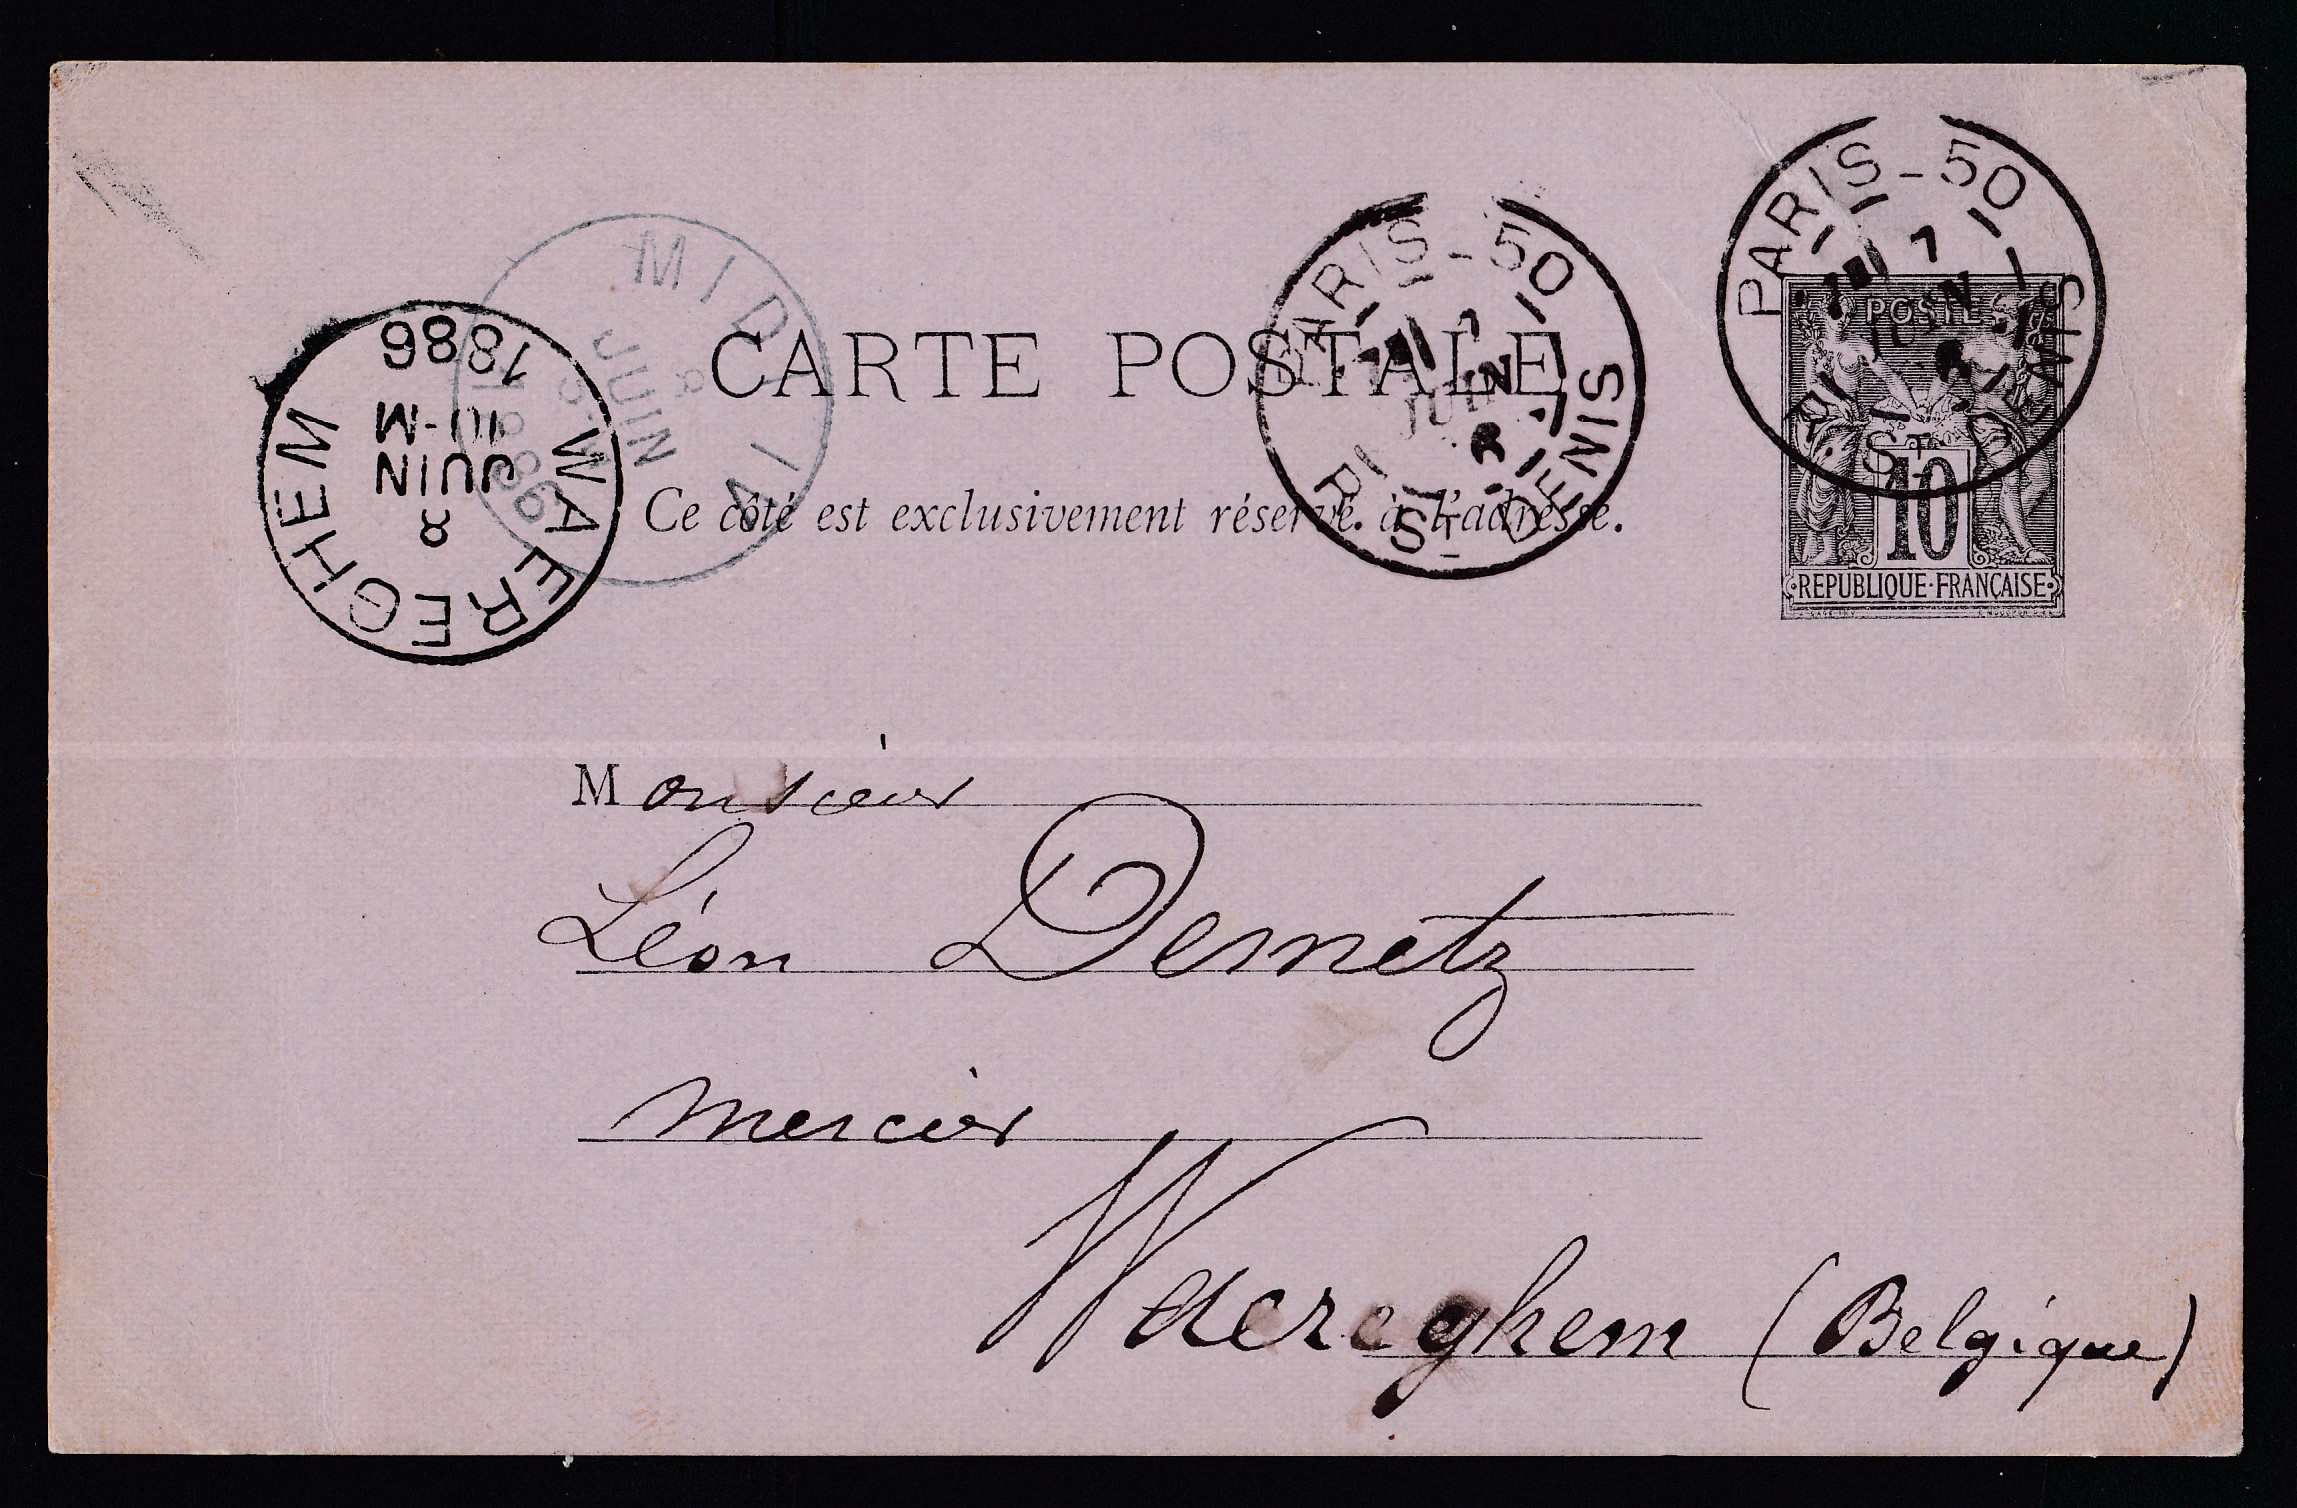 PARIS-50
7
JUIN
R. ST DENIS
POSTE
10
REPUBLIQUE·FRANÇAISE
PARIS-50
7
JUIN
R. ST DENIS
MIDI
JUIN
WAEREGHEM
8
JUIN
10-M
1886
CARTE POSTALE
Ce côté est exclusivement réservé à l'adresse.
Monsieur
Léon Demetz
mercier
Waereghem (Belgique)